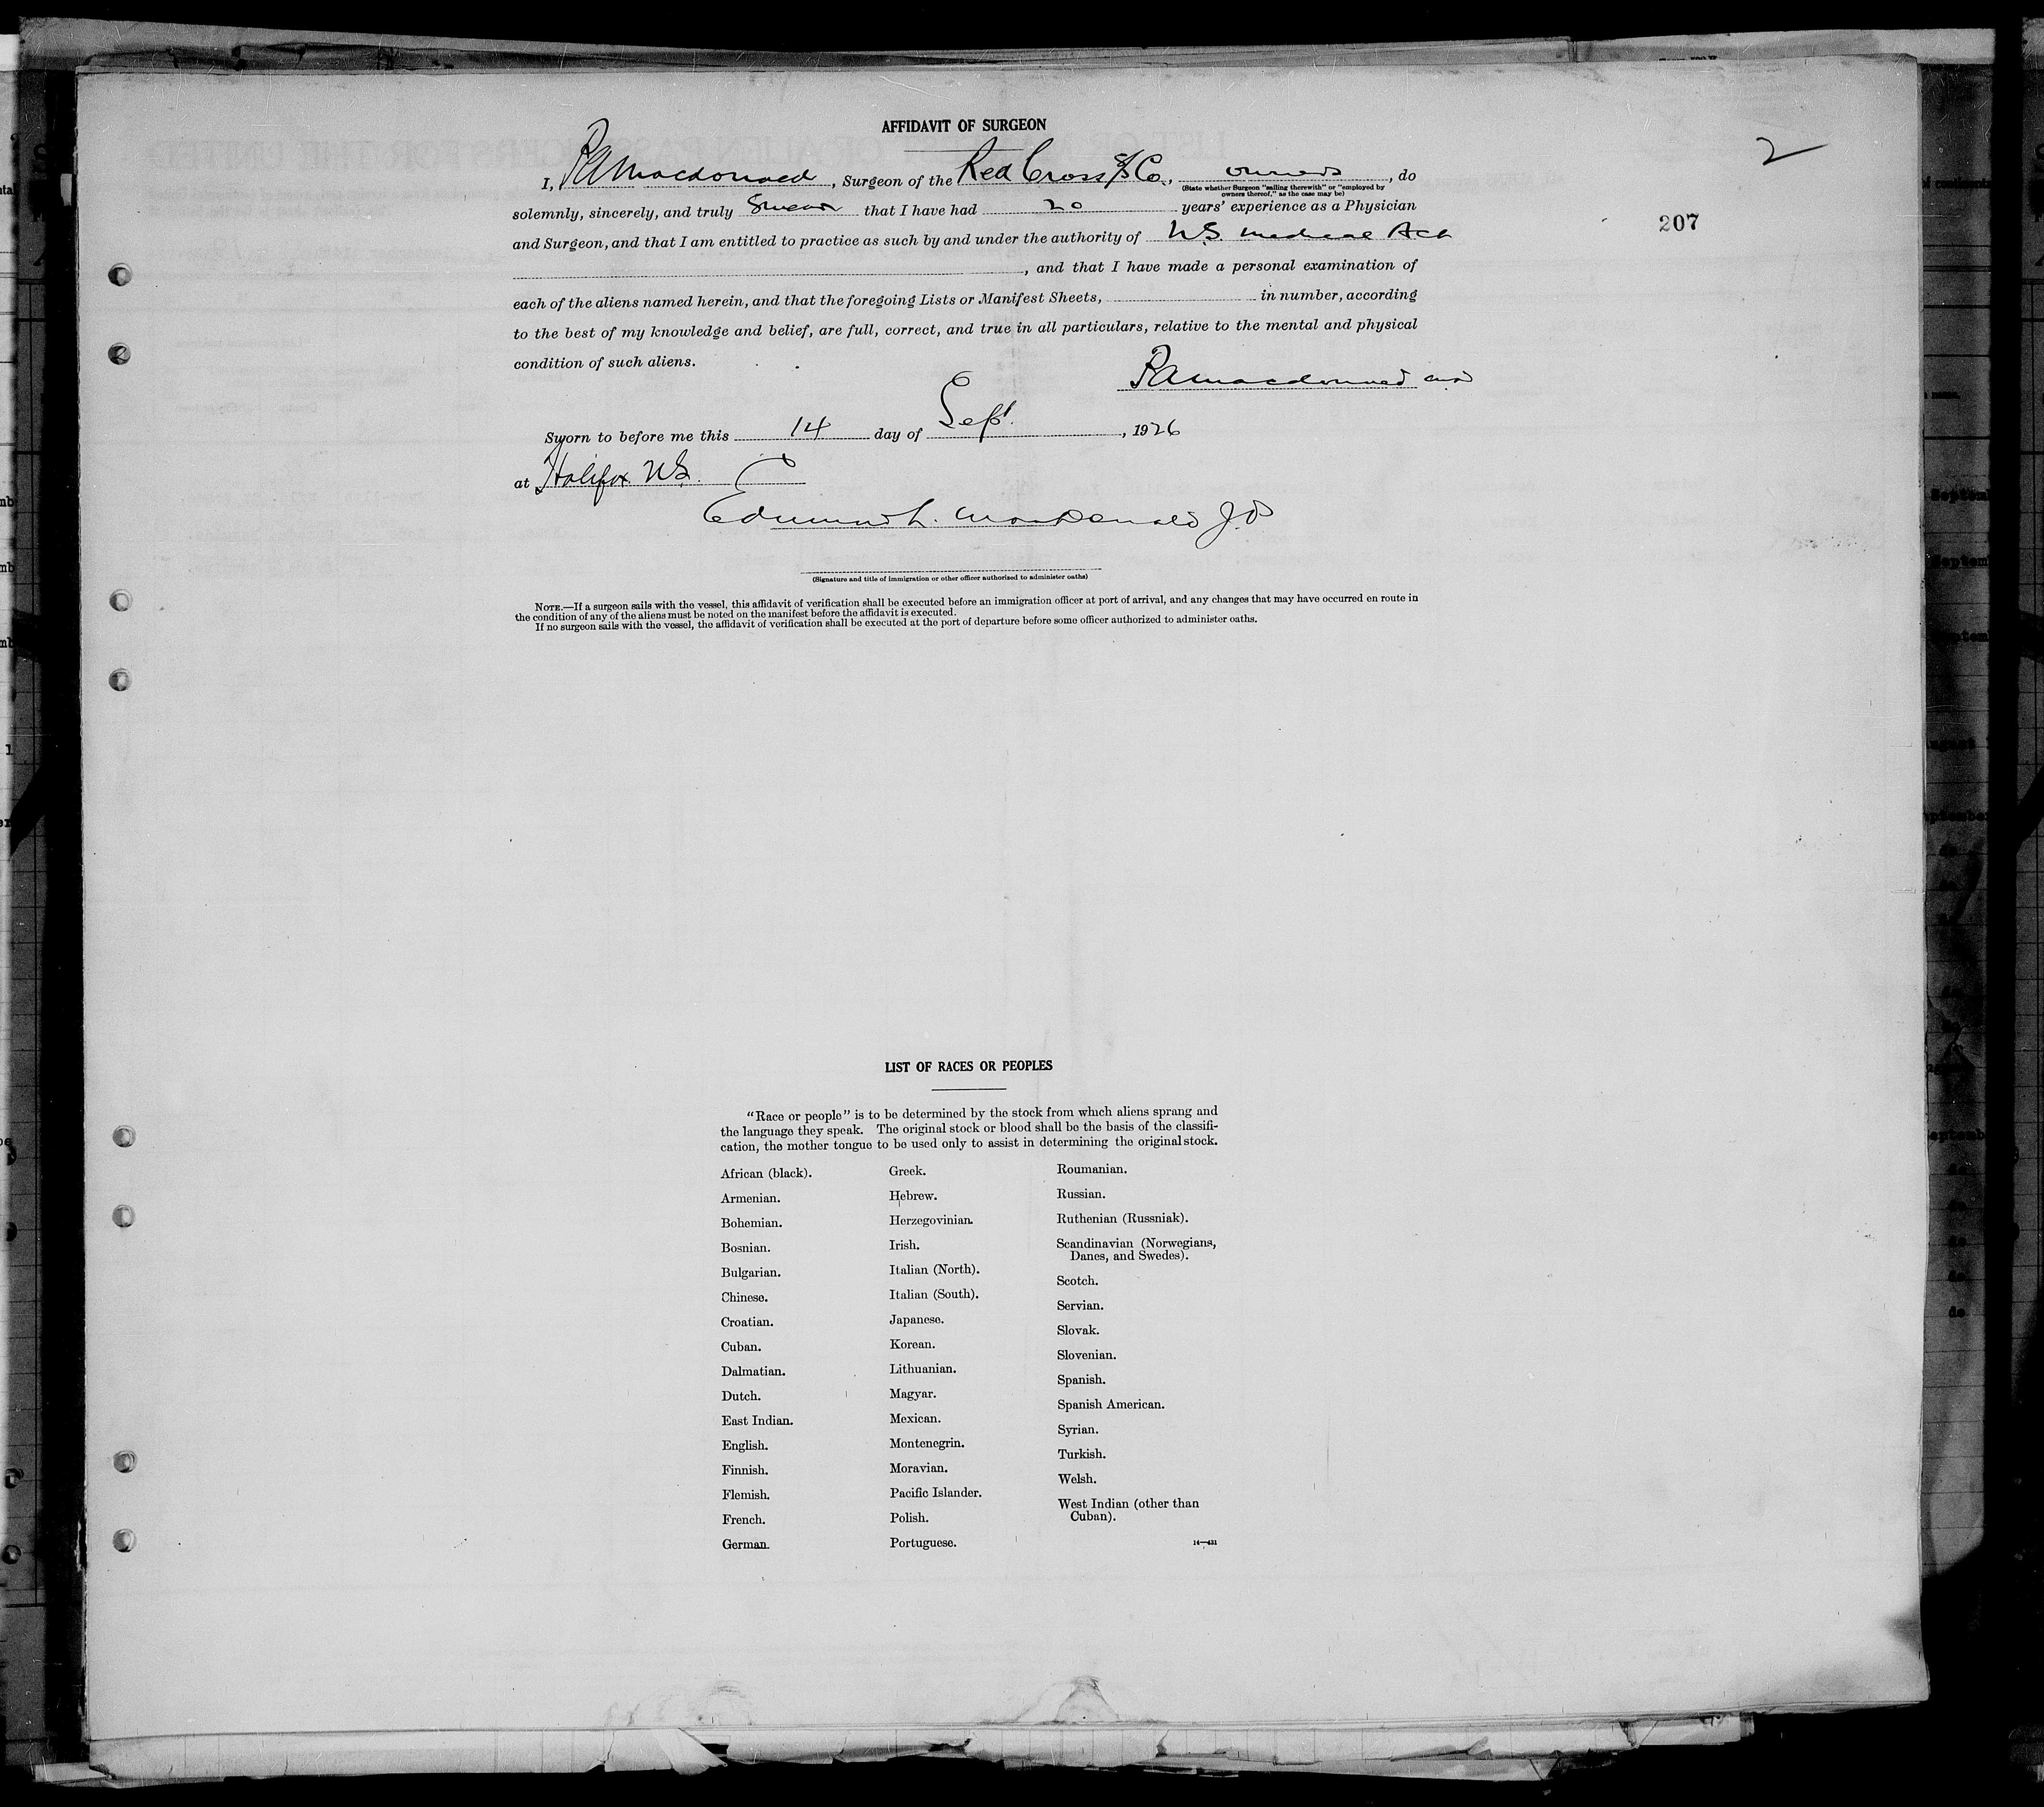 2
207
AFFIDAVIT OF SURGEON
I, P A Macdonald, Surgeon of the Red Cross S/S Co., owners, do
(State whether Surgeon "sailing therewith" or "employed by
owners thereof," as the case may be)
solemnly, sincerely, and truly Swear that I have had 20 years' experience as a Physician
and Surgeon, and that I am entitled to practice as such by and under the authority of N.S. Medical Act
, and that I have made a personal examination of
each of the aliens named herein, and that the foregoing Lists or Manifest Sheets, in number, according
to the best of my knowledge and belief, are full, correct, and true in all particulars, relative to the mental and physical
condition of such aliens.
P A Macdonald MD
Sworn to before me this 14 day of Sept., 1926
at Halifax N.S.
Edmund L. MacDonald J.P.
(Signature and title of immigration or other officer authorized to administer oaths)
NOTE.—If a surgeon sails with the vessel, this affidavit of verification shall be executed before an immigration officer at port of arrival, and any changes that may have occurred en route in
the condition of any of the aliens must be noted on the manifest before the affidavit is executed.
If no surgeon sails with the vessel, the affidavit of verification shall be executed at the port of departure before some officer authorized to administer oaths.
LIST OF RACES OR PEOPLES
"Race or people" is to be determined by the stock from which aliens sprang and
the language they speak. The original stock or blood shall be the basis of the classifi-
cation, the mother tongue to be used only to assist in determining the original stock.
African (black).
Armenian.
Bohemian.
Bosnian.
Bulgarian.
Chinese.
Croatian.
Cuban.
Dalmatian.
Dutch.
East Indian.
English.
Finnish.
Flemish.
French.
German.
Greek.
Hebrew.
Herzegovinian.
Irish.
Italian (North).
Italian (South).
Japanese.
Korean.
Lithuanian.
Magyar.
Mexican.
Montenegrin.
Moravian.
Pacific Islander.
Polish.
Portuguese.
Roumanian.
Russian.
Ruthenian (Russniak).
Scandinavian (Norwegians,
Danes, and Swedes).
Scotch.
Servian.
Slovak.
Slovenian.
Spanish.
Spanish American.
Syrian.
Turkish.
Welsh.
West Indian (other than
Cuban).
14—431